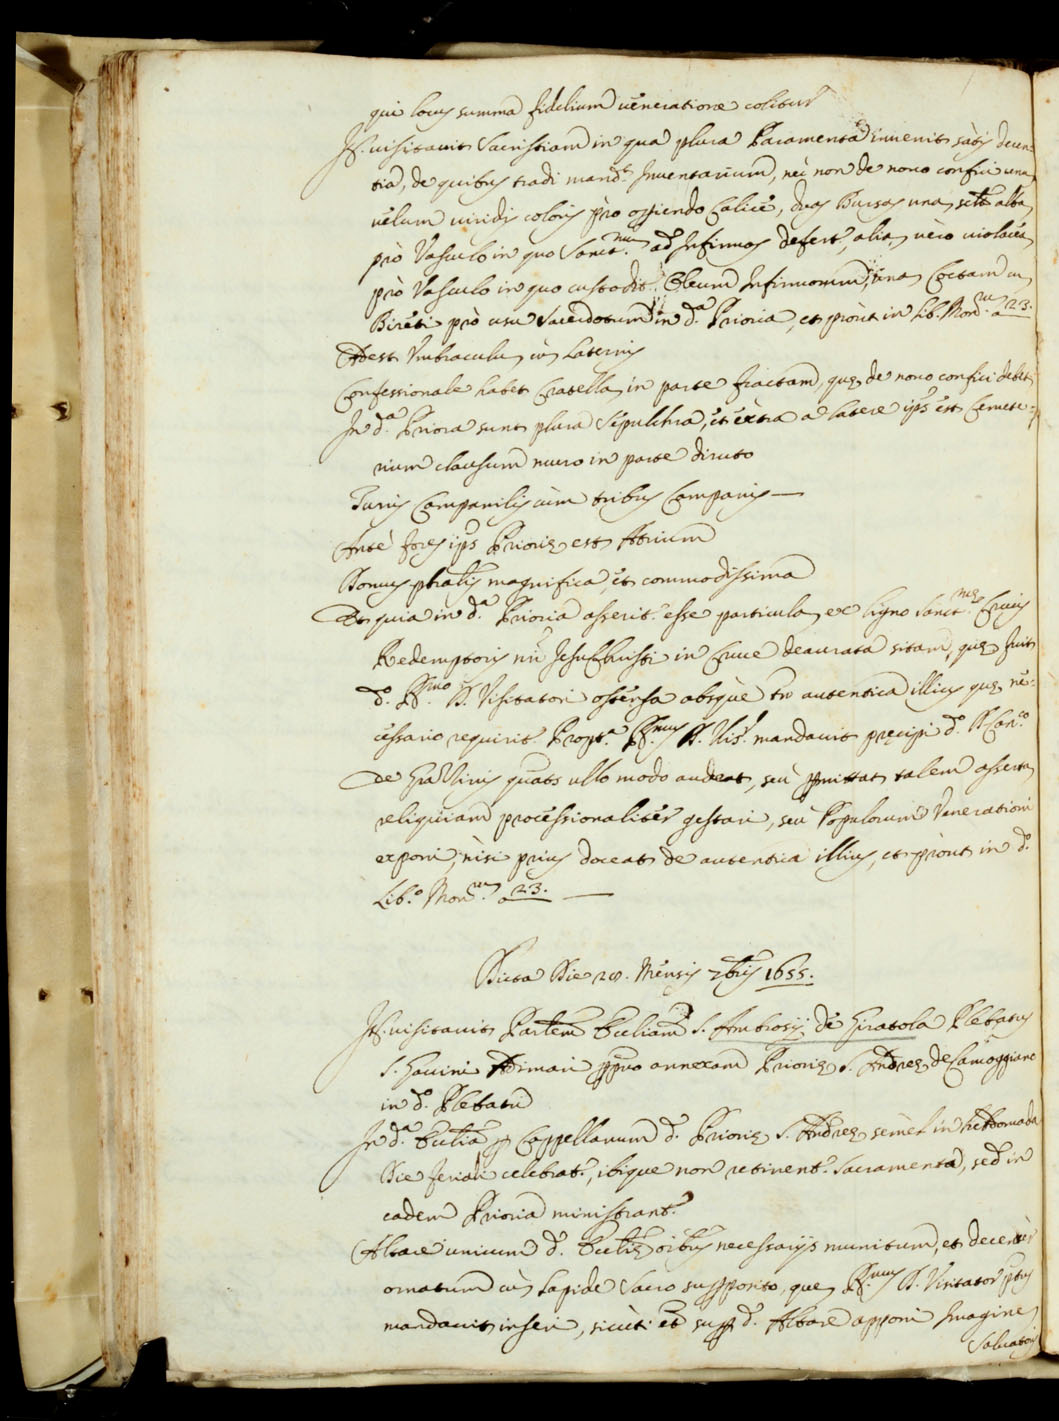 qui locus summa fidelium ueneratione colitur
It. uisitauit Sacristiam in qua plura Paramenta inuenit satis decen-
tia, de quibus tradi mand.t Inuentarium, nec non de nouo confici una
uelum uiridis coloris prò operiendo Calice, duas Bursas una alba
prò Vasculo in quo Sanct.mum ad Infirmos defert, alia uero uiolacea
prò Vasculo in quo custodit. Oleum Infirmorum, una Coctam cu
Bireti prò usu Sacerdotum in d.a Prioria, et prout in Lib. Mon.m a 23.
Adest Vmbraculu cu Laternis
Confessionale habet Cratella in parte fractam, que de nouo confici debet
In d.a Priora sunt plura Sepulchra, et extra a latere ips est Cemete=
rium clausum muro in parte diruto
Turris Campanilis cum tribus Campanis —
Ante fores ips Priorie est Atrium
Domus pbralis magnifica, et commodissima
Et quia in d.a Prioria asserit. esse particula ex ligno Sanct.me Crucis
Redemptoris nri Jesu Christi in Cruce deaurata sitam, que fuit
d.o R.mo D. Visitatori ostensa absque tn autentica illius que ne-
cessario requirit. Propt.a R.mus D. Vis.r mandauit precipi d.o D. Can.co
de Gra Viniis quats ullo modo audeat, seu pmittat talem asserta
reliquiam processionaliter gestari, seu Populorum Venerationi
exponi, nisi prius doceat de autentica illius, et prout in d.o
Lib.o Mon.m a 23. —
Dicta Die 28. Mensis 7bris 1655.
It. uisitauit Eccliam S. Ambrosij de Giratola Plebatus
S. Gauini Adimari ppuo annexam Priorie S. Andree de Camoggiano
in d.o Plebatu
In d.a Ecclia p Cappellanum d. Priorie S. Andree semel in hebdomada
Die feriali celebrat., ibique non retinent. Sacramenta, sed in
eadem Prioria ministrant.
Altare unicum d. Ecclie oibus necessarijs munitum, et decenter
ornatum cu Lapide Sacro supposito, que R.mus D. Visitator ptus
mandauit inseri, sicuti et supp d. Altare apponi Imagine
Saluatoris